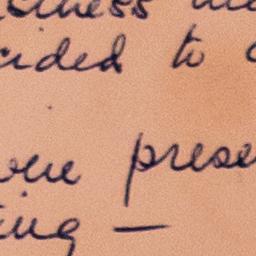 siness
cided to
prese
ing —